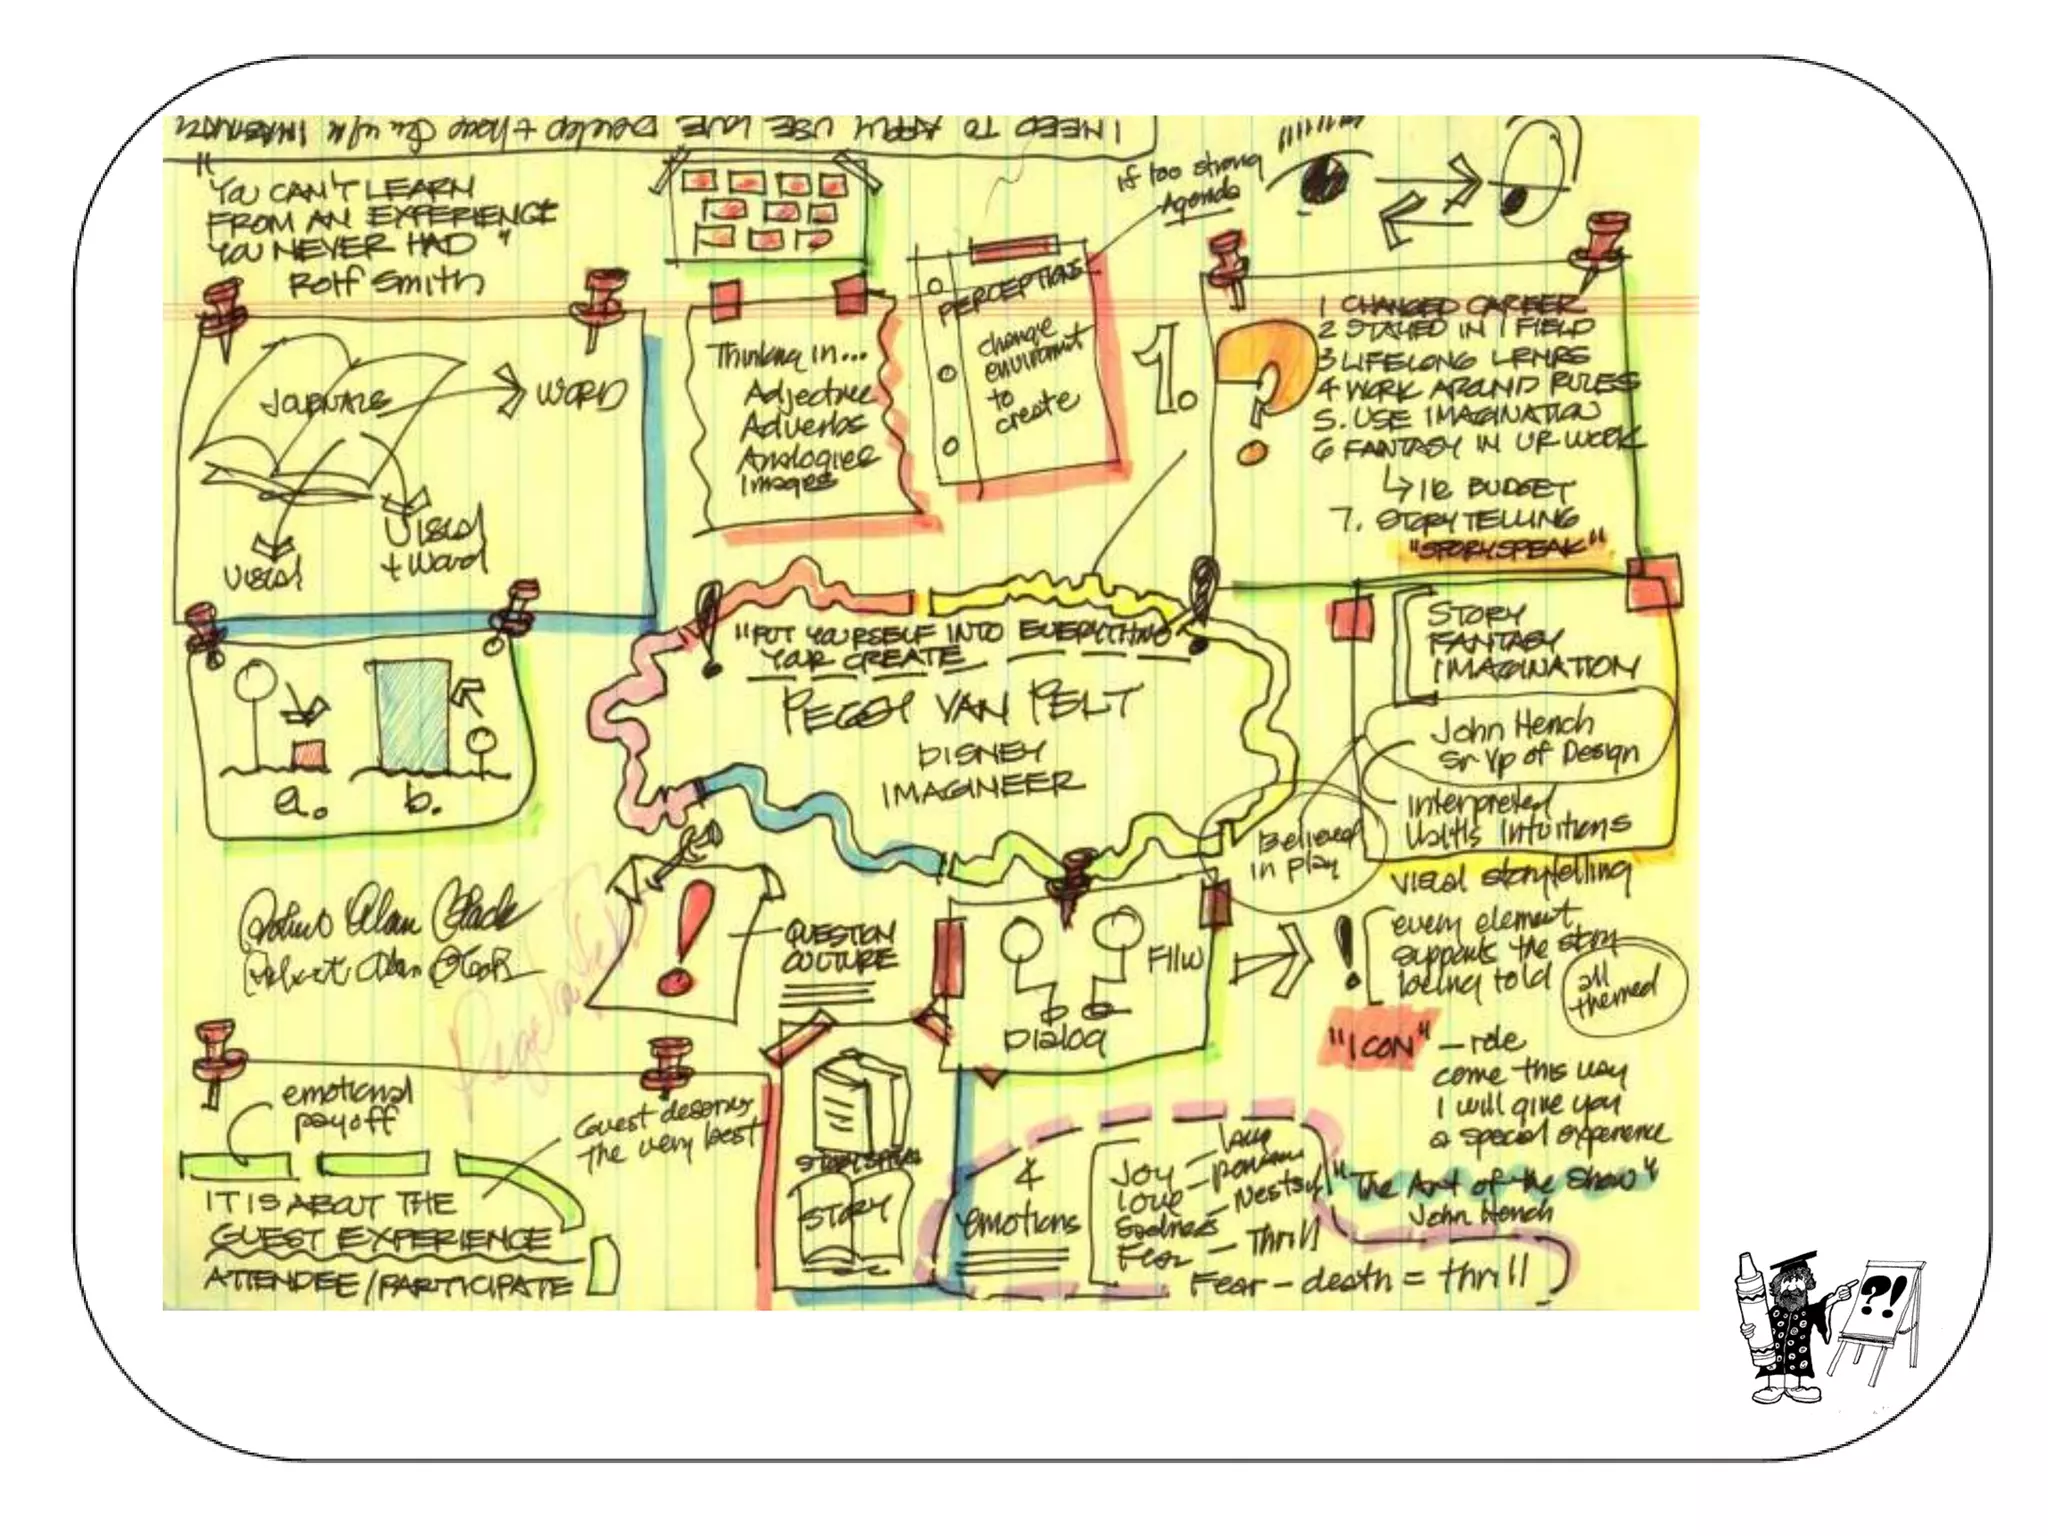 I NEED TO APPLY USE LIVE Develop + have
"YOU CAN'T LEARN
FROM AN EXPERIENCE
YOU NEVER HAD"
Rolf Smith
if too strong
Agenda
JOURNALS
WORD
VISUAL
VISUAL
+ Word
Thinking in...
Adjective
Adverbs
Analogies
Images
PERCEPTIONS
change
environmt
to
create
1.
?
1 CHANGED CAREER
2 STAYED IN 1 FIELD
3 LIFELONG LRNRS
4 WORK AROUND RULES
5. USE IMAGINATION
6 FANTASY IN UR WORK
BUDGET
7. STORYTELLING
"STORYSPEAK"
a. b.
"PUT YOURSELF INTO EVERYTHING
YOUR CREATE
PEGGY VAN PELT
DISNEY
IMAGINEER
STORY
FANTASY
IMAGINATION
John Hench
Sr Vp of Design
interpreted
Walt's intuitions
Believed
in play
visual storytelling
Robert Alan Black
Robert Alan Black
!
QUESTION
CULTURE
FIIW
DIALOG
! every element
supports the story
being told
all
themed
"ICON" - role
come this way
I will give you
a special experience
emotional
payoff
Guest deserves
the very best
IT IS ABOUT THE
GUEST EXPERIENCE
ATTENDEE/PARTICIPATE
STORY
4
emotions
Joy
Love
Sadness
Fear - Thrill
Fear - death = thrill
"The Art of the Show"
John Hench
?!